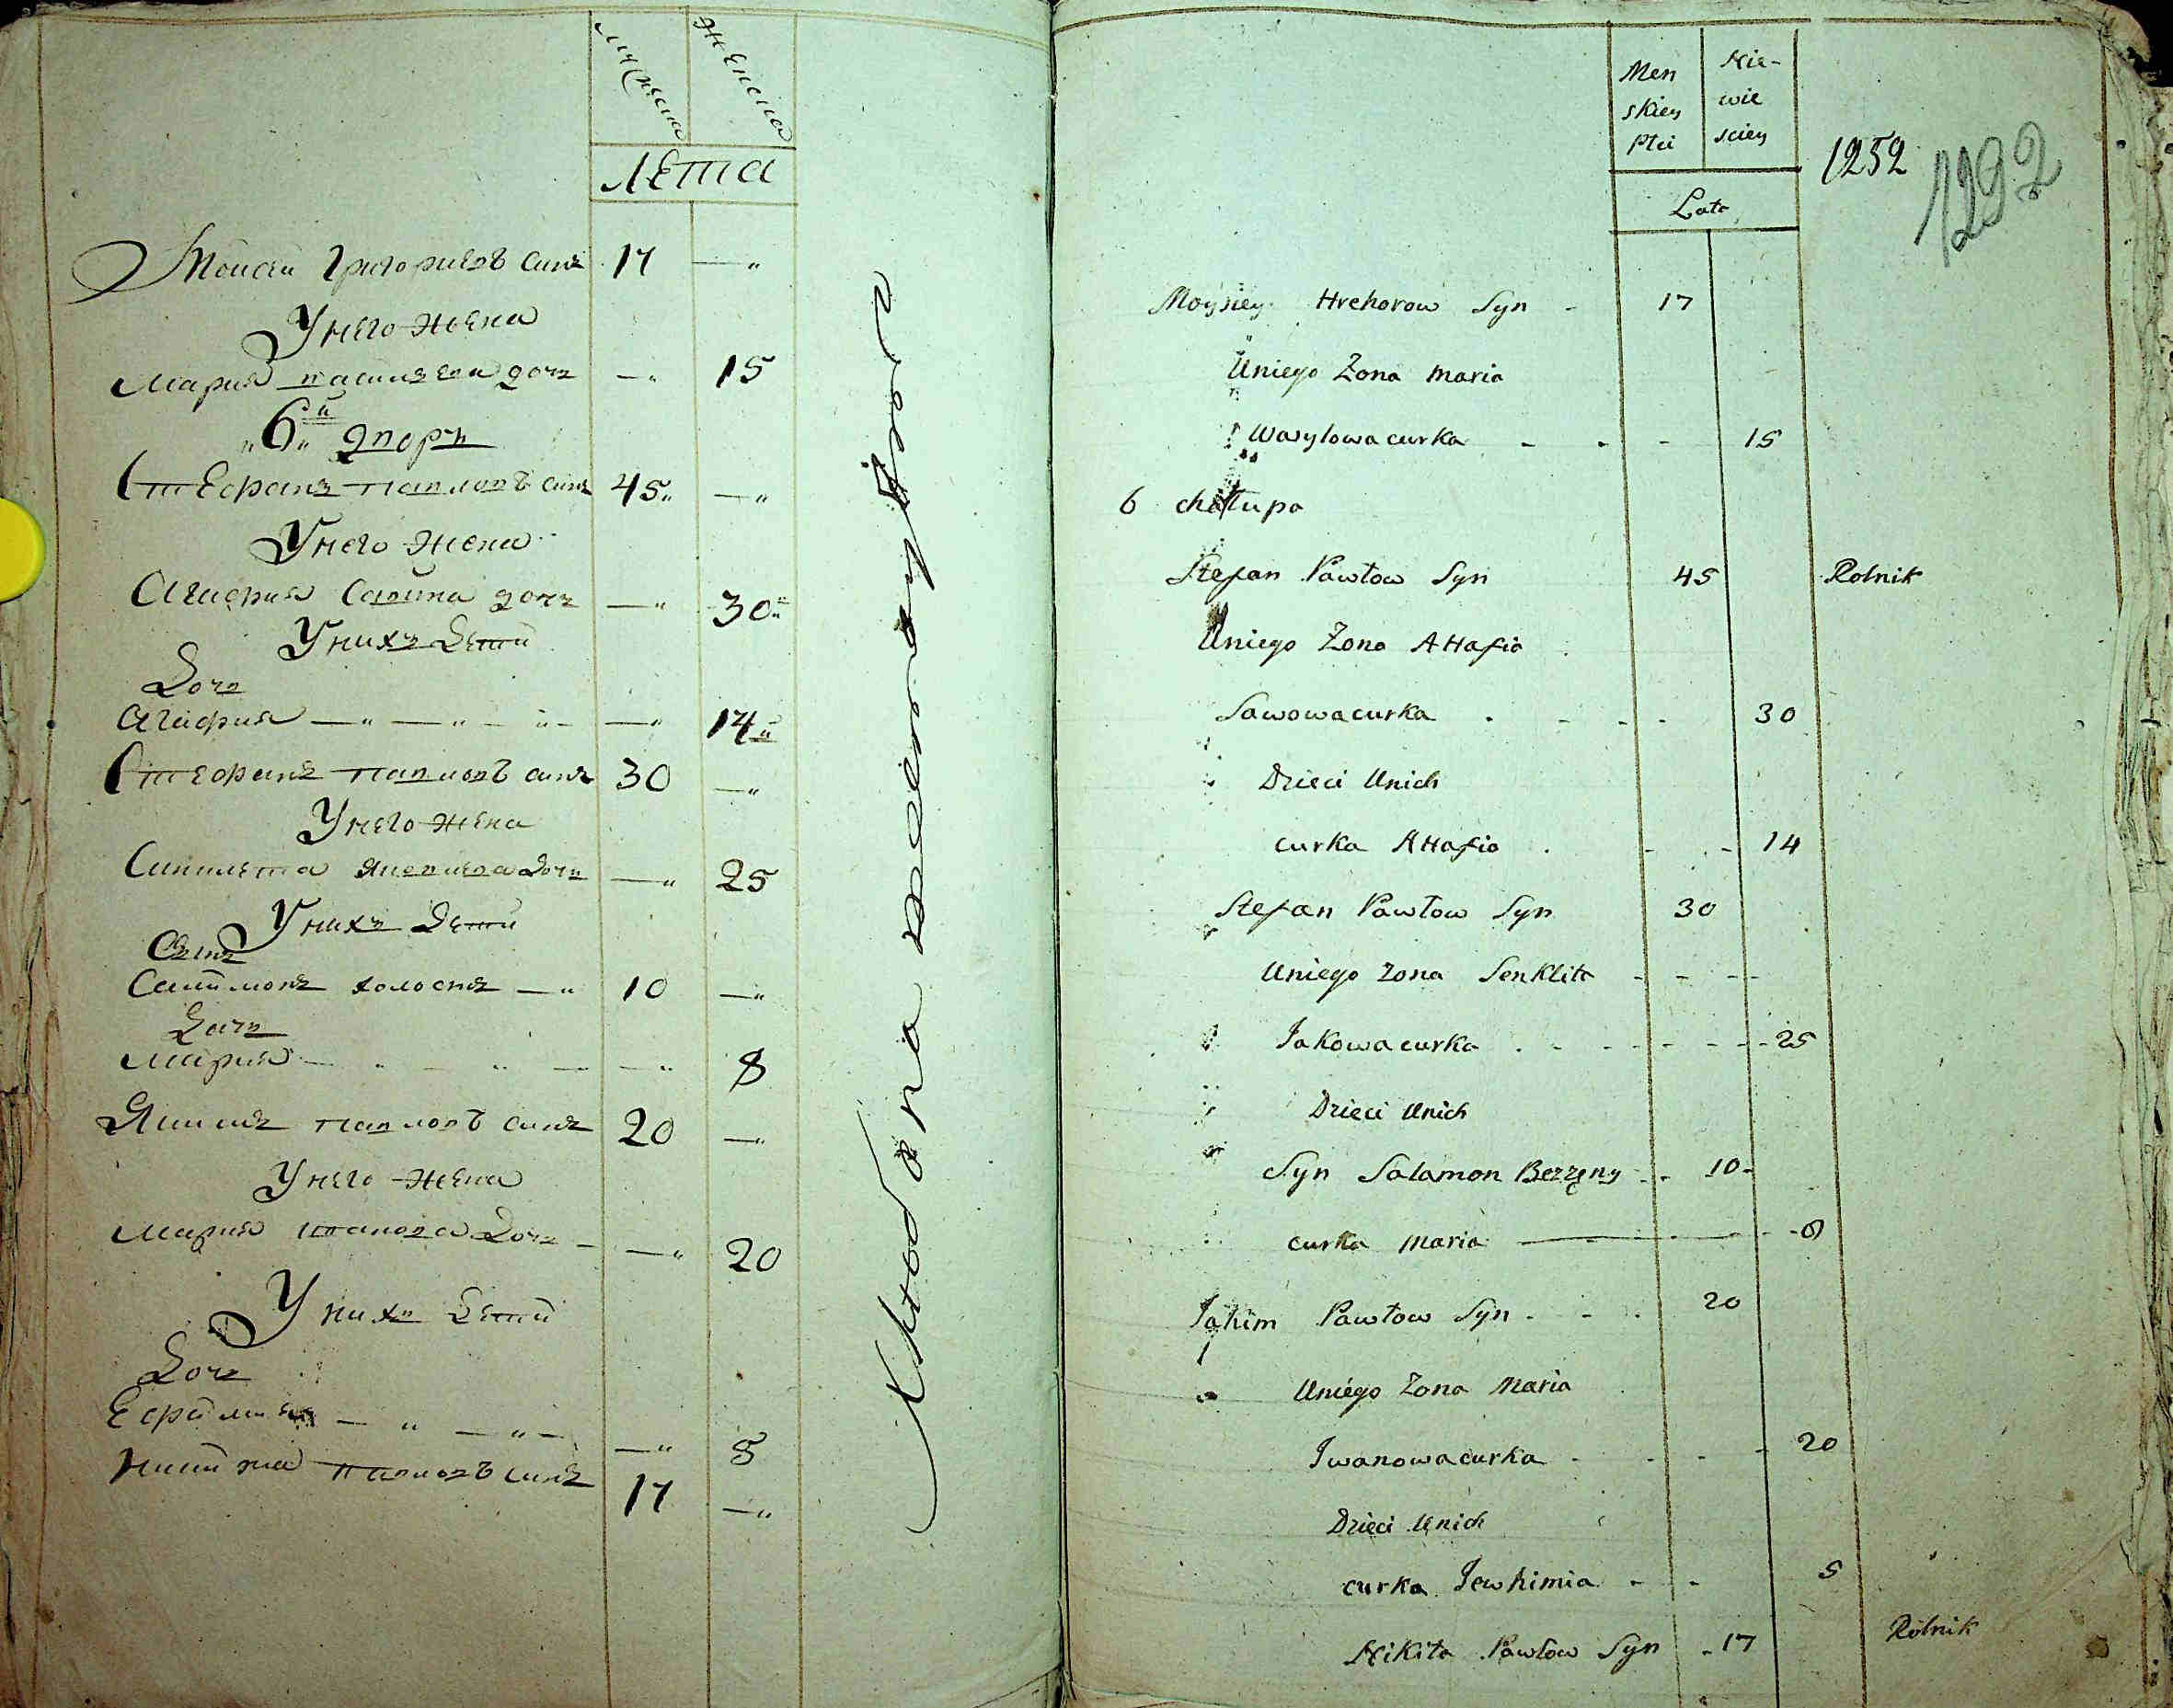 мужеска
женска
лета
Моисей Григориевъ синъ 17 — „
У него жена
Мария василева дочъ — „ 15
„6„й дворъ
Стефанъ павловъ синъ 45„ — „
У него жена
Агафия Савина дочъ — „ 30„
У нихъ дети
Дочъ
Агафия — „ — „ — „ — — „ 14„
Стефанъ павловъ синъ 30 — „
У него жена
Яковлева дочъ — „ 25
У нихъ дети
Синъ
холостъ — „ 10 — „
Дочъ
Мария — „ — „ — — „ 8
Якимъ павловъ синъ 20 — „
У него жена
Мария иванова дочъ — — „ 20
У нихъ дети
Дочъ
— „ — „ — — „ 5
Никита павловъ синъ 17 — „
Men
skiey
Płci
Nie-
wie
sciey
Lata
1252
1292
Moysiey Hrehorow Syn - 17
Uniego Zona maria
Wasylowa curka - - - 15
6 chałupa
Stefan Pawłow Syn 45 Rolnik
Uniego Zona AHafia
Sawowa curka . - - - 30
Dzieci Unich
curka AHafia . - - 14
Stefan Pawłow Syn 30
Uniego zona Senklita - - - -
Jakowa curka . - - - - - - 25
Dzieci Unich
Syn Salamon Bezzęny - . 10 -
curka maria — - - 8
Jahim Pawłow Syn . - . 20
Uniego Zona Maria
Iwanowa curka - - - - 20
Dzieci Unich
curka Jewhimia - - 5
Nikita Pawłow Syn - 17 Rolnik